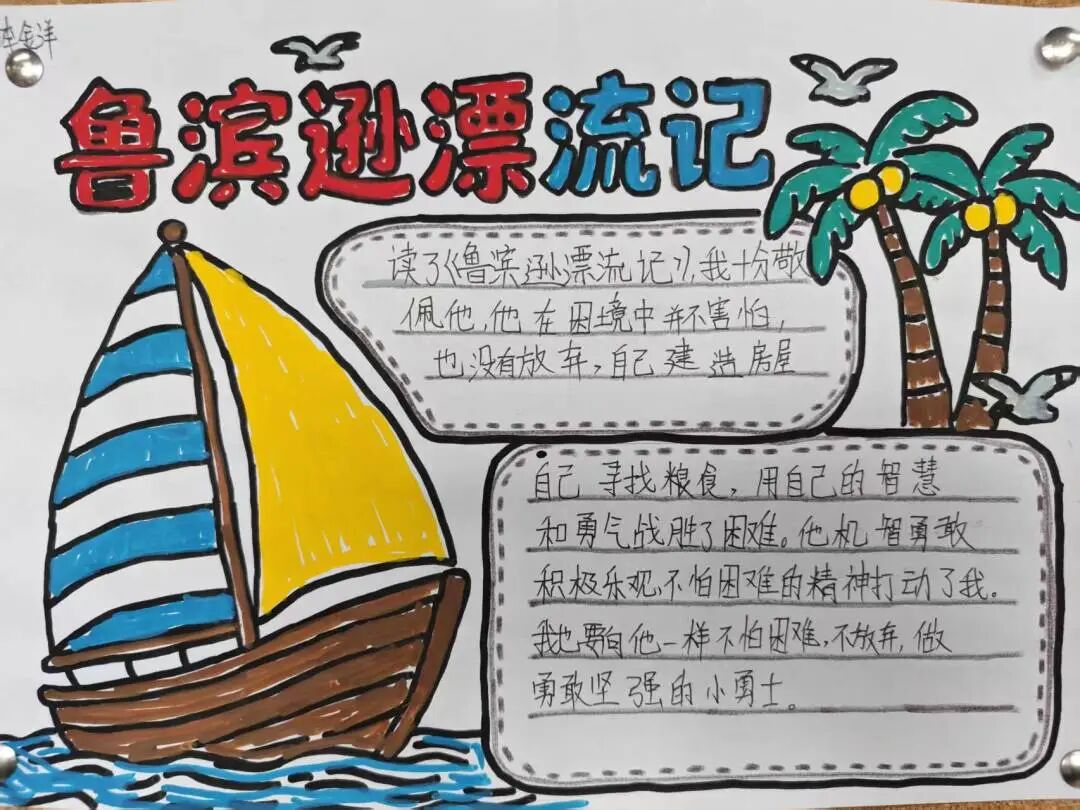 鲁滨逊漂流记
读了《鲁宾逊漂流记》,我十分敬
佩他,他在困境中并不害怕,
也没有放弃,自己建造房屋
自己寻找粮食,用自己的智慧
和勇气战胜了困难。他机智勇敢
积极乐观,不怕困难的精神打动了我。
我也要向他一样不怕困难,不放弃,做
勇敢坚强的小勇士。